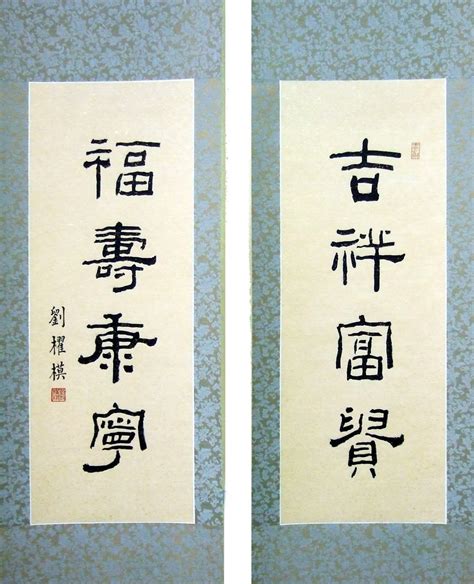 吉祥富貴
福壽康寧
劉櫂模